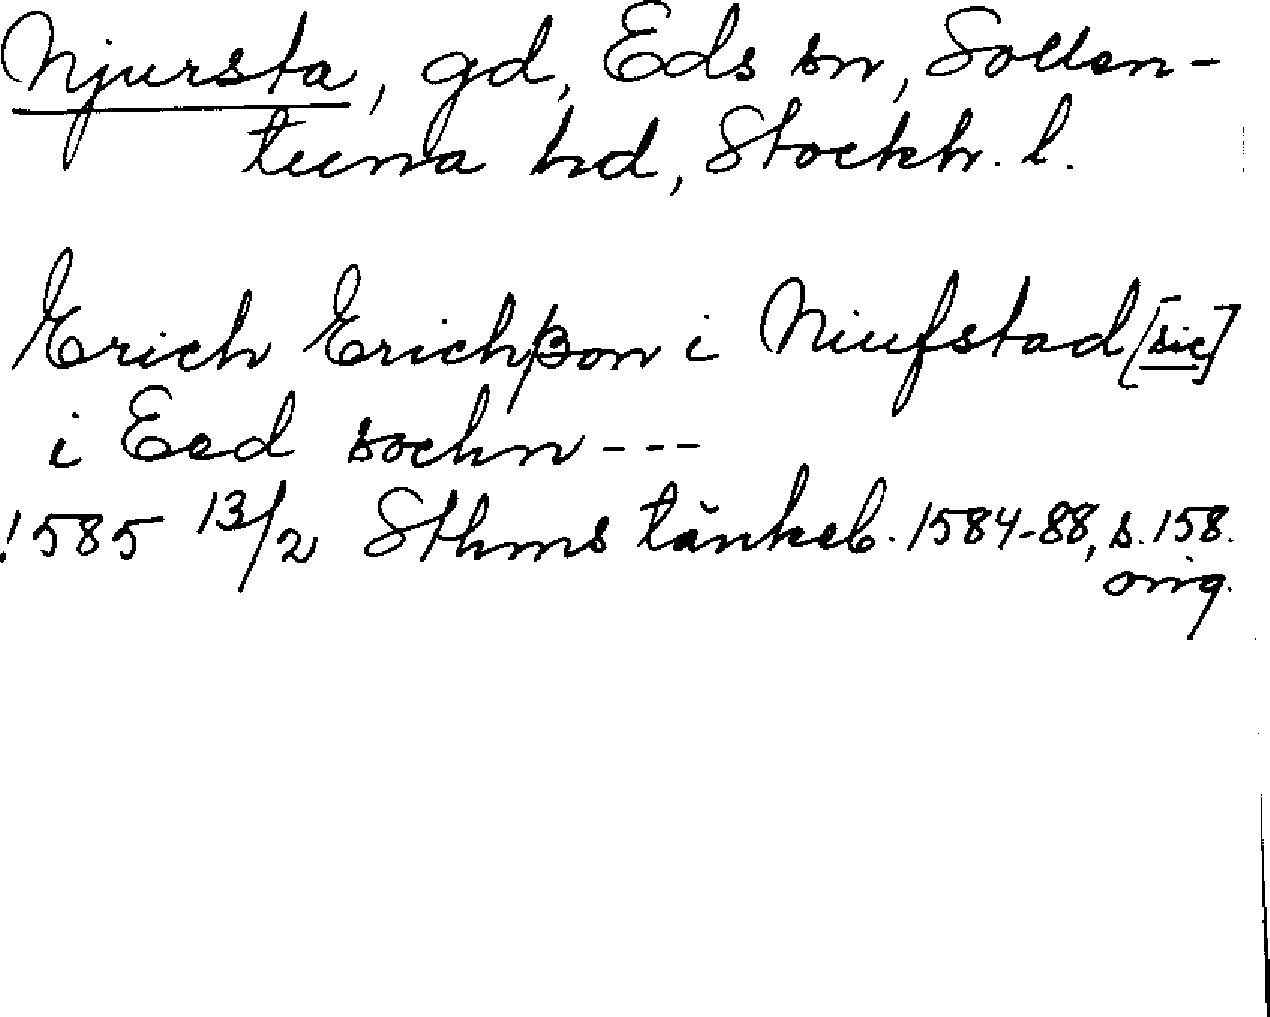 Njursta, gd, Eds sn, Sollen-
tuna hd, Stockh. l.
Erich Erichßon i Niufstad [sic]
i Eed sochn ---
1585 13/2 Sthms tänkeb. 1584-88, s. 158.
orig.